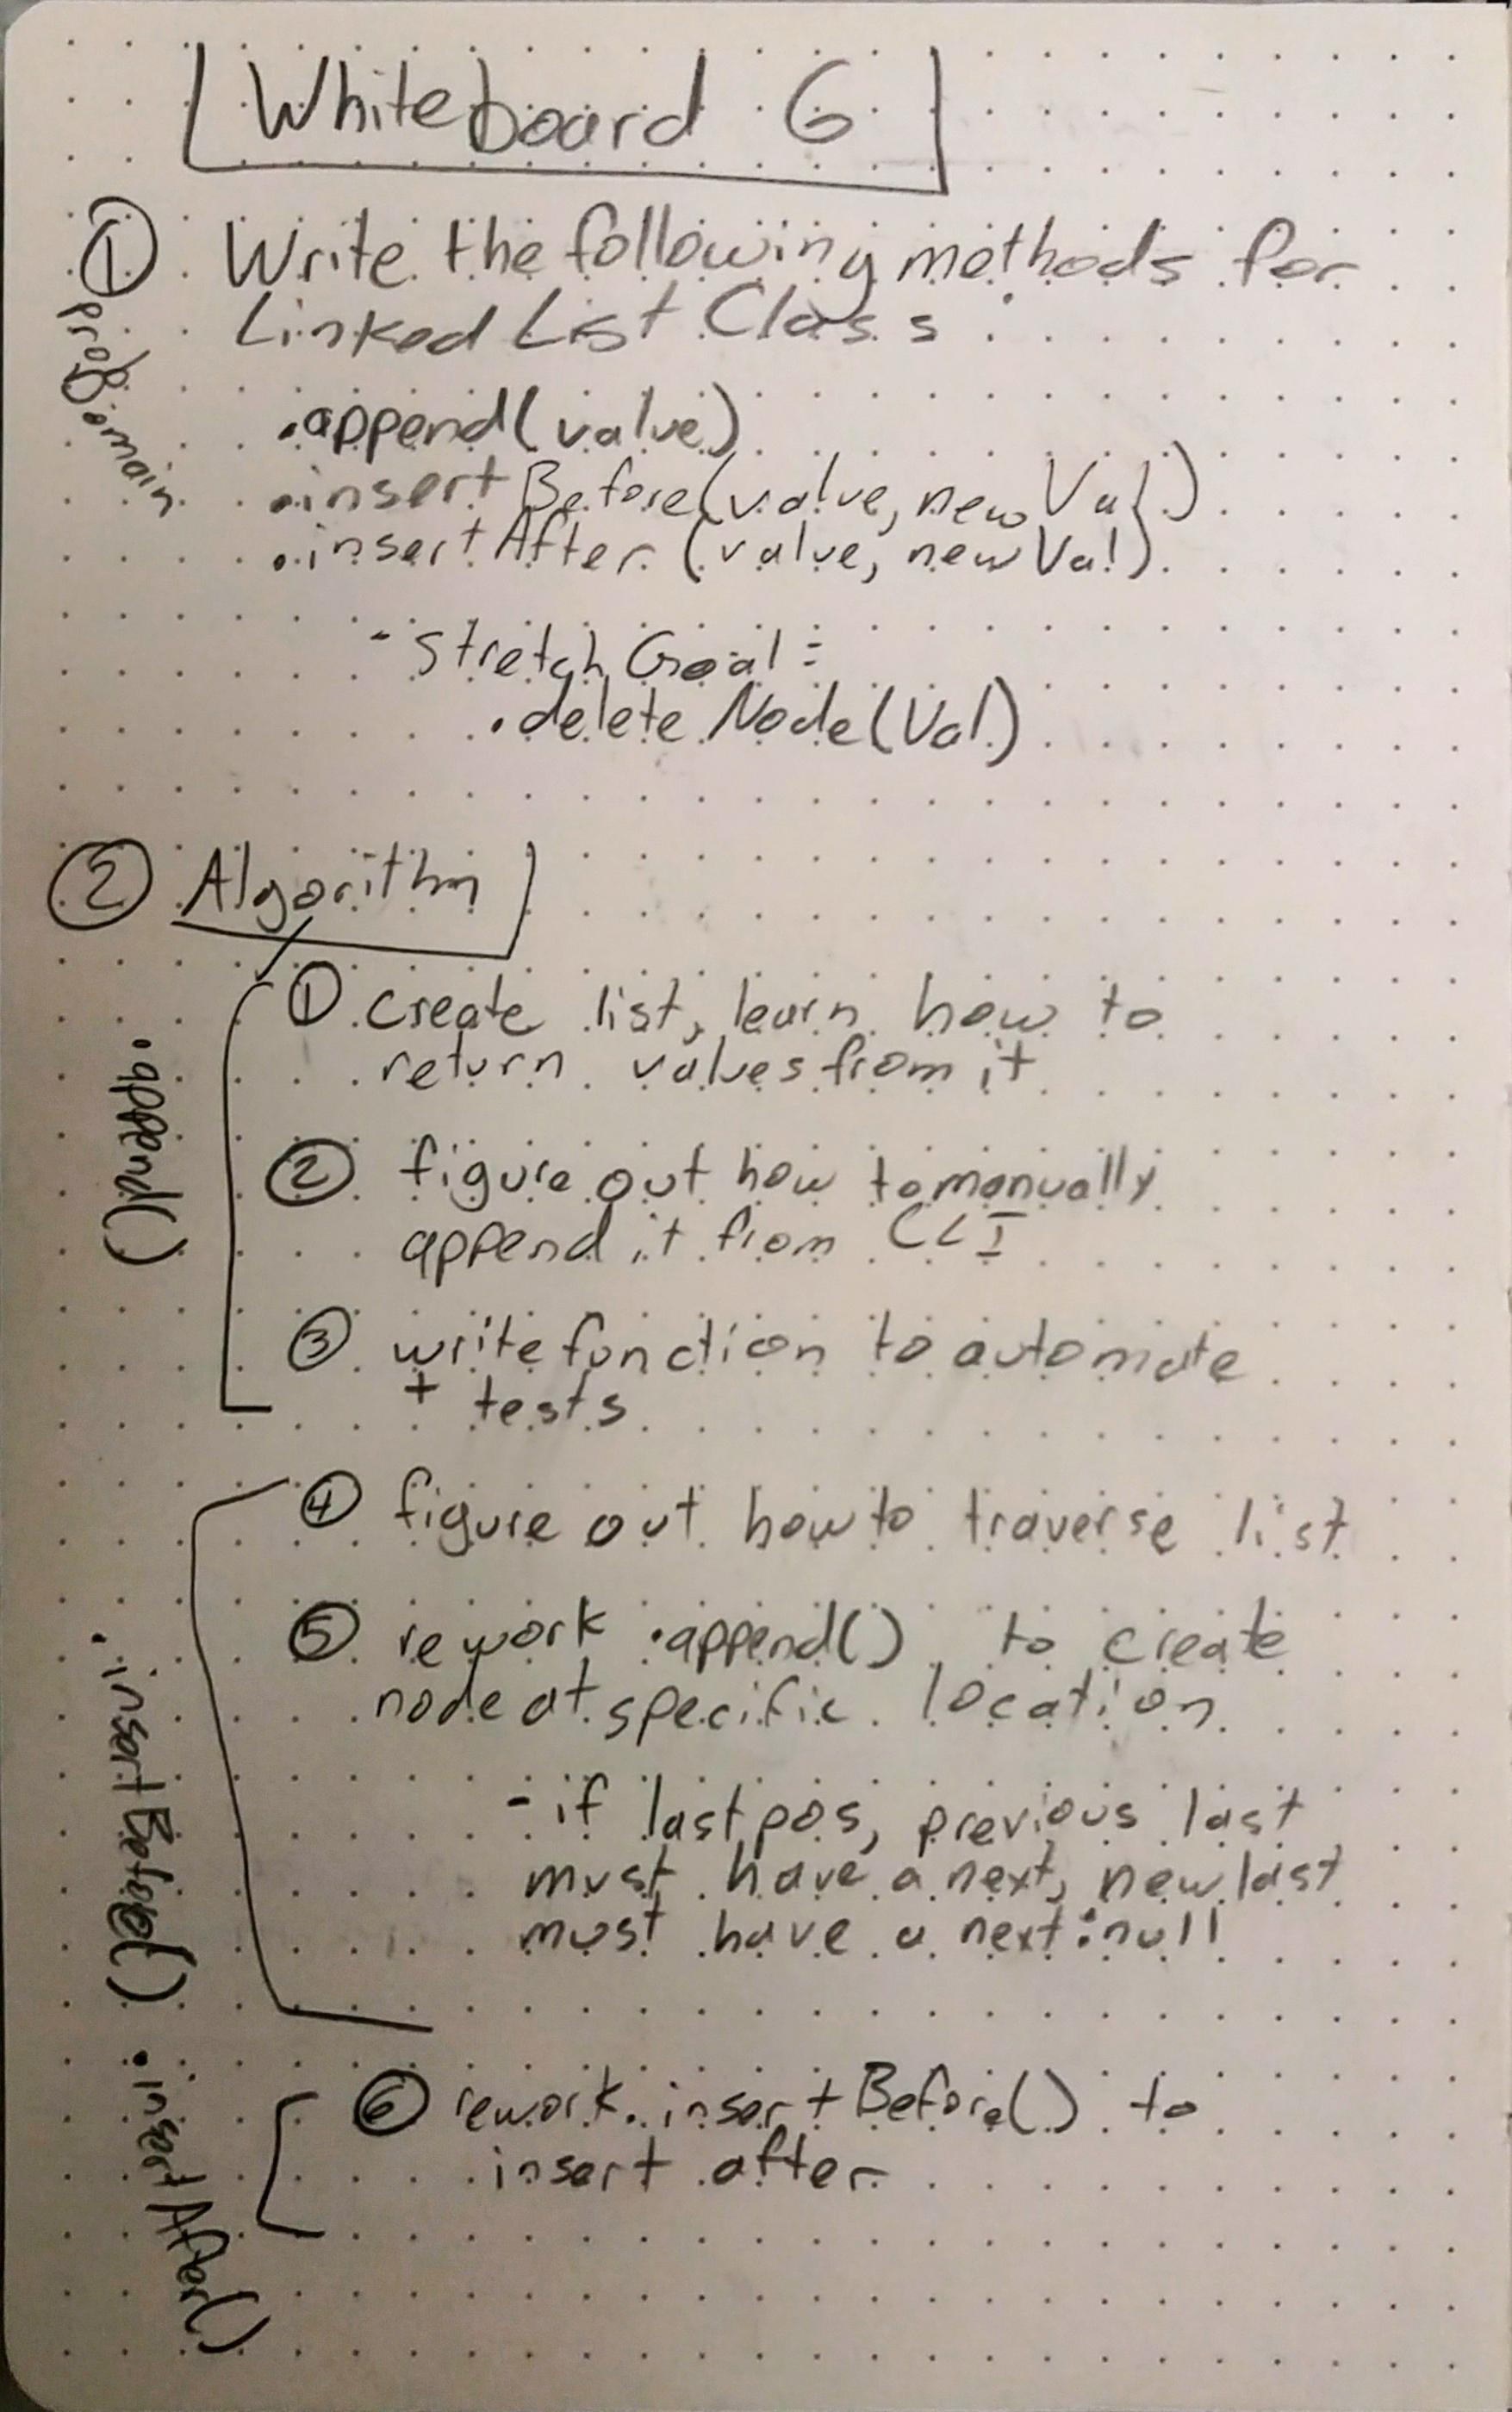 Whiteboard 6
① Write the following methods for
Linked List Class:
prob Domain
.append(value)
.insertBefore(value, newVal)
.insertAfter(value, newVal)
- Stretch Goal:
.deleteNode(Val)
② Algorithm
.append()
① create list, learn how to
return values from it
② figure out how to manually
append it from CLI
③ write function to automate
+ tests
.insertBefore()
④ figure out how to traverse list
⑤ rework .append() to create
node at specific location
- if last pos, previous last
must have a next, new last
must have a next:null
.insertAfter()
⑥ rework .insertBefore() to
insert after